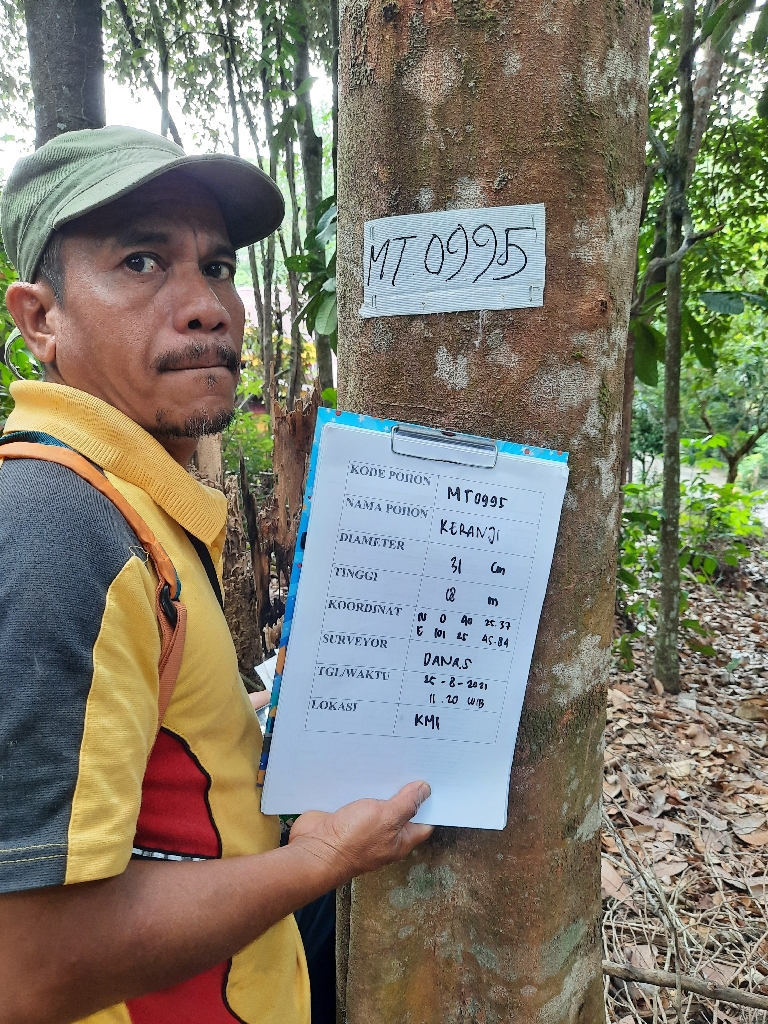 MT 0995
KODE POHON MT0995
NAMA POHON KERANJI
DIAMETER 31 Cm
TINGGI 18 m
KOORDINAT N 0 40 25.37
E 101 25 45.84
SURVEYOR DANAS
TGL/WAKTU 25-8-2021
11.20 WIB
LOKASI KMI